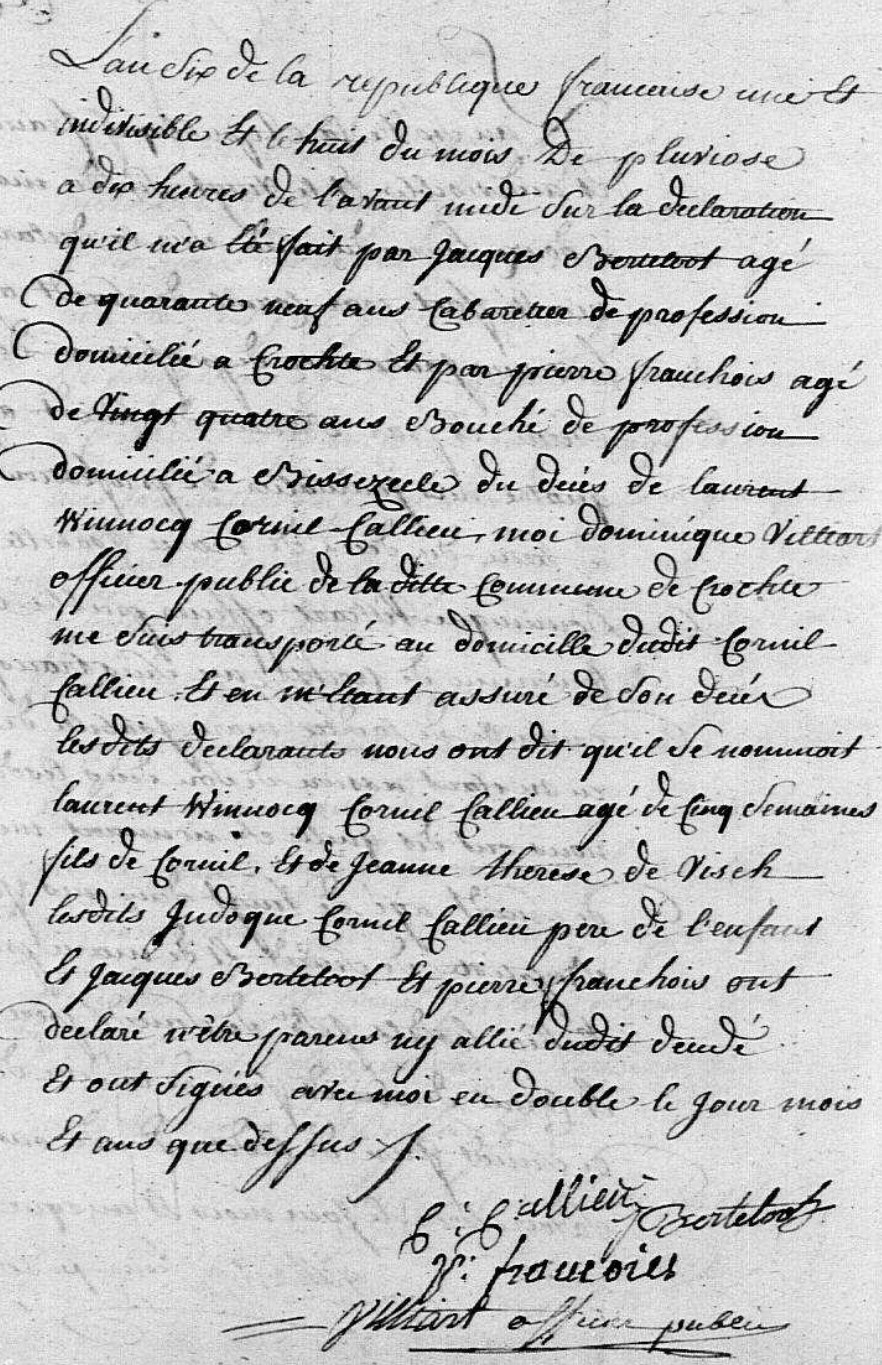 L'an dix de la republique francoise une Et
indivisible Et le huit du mois De pluviose
a dix heures de l'avant midi sur la declaration
qu'il m'a Eté fait par Jacques Berteloot agé
de quarante neuf ans Cabaretier de profession
domicilié a Crochte Et par pierre franchois agé
de Vingt quatre ans Bouché de profession
domicilié a Bissezeele du decés de laurent
Winnocq Cornil Callieu, moi dominique Villiart
officier public de la ditte Commune de Crochte
me suis transporté au domicille dudit Cornil
Callieu. Et en m'Etant assuré de son decés
lesdits declarants nous ont dit qu'il se nommoit
laurent Winnocq Cornil Callieu agé de Cinq semaines
fils de Cornil, Et de Jeanne therese de Visch
lesdits Judoque Cornil Callieu pere de l'enfant
Et Jacques Berteloot Et pierre franchois ont
declaré n'être parens ny allié dudit decedé
Et ont signés avec moi en double le jour mois
Et ans que dessus
C: Callieu J Berteloot
p: francois
Villiart officier public